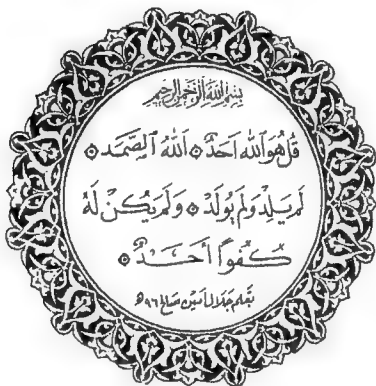 بِسْمِ اللهِ الرَّحْمٰنِ الرَّحِيمِ
قُلْ هُوَ اللهُ اَحَدٌ ۞ اَللهُ الصَّمَد ۞
لَمْ يَلِدْ وَلَمْ يُولَدْ ۞ وَلَمْ يَكُنْ لَهُ
كُفُواً أَحَـــدٌ ۞
بقلم جلال أمين صالح